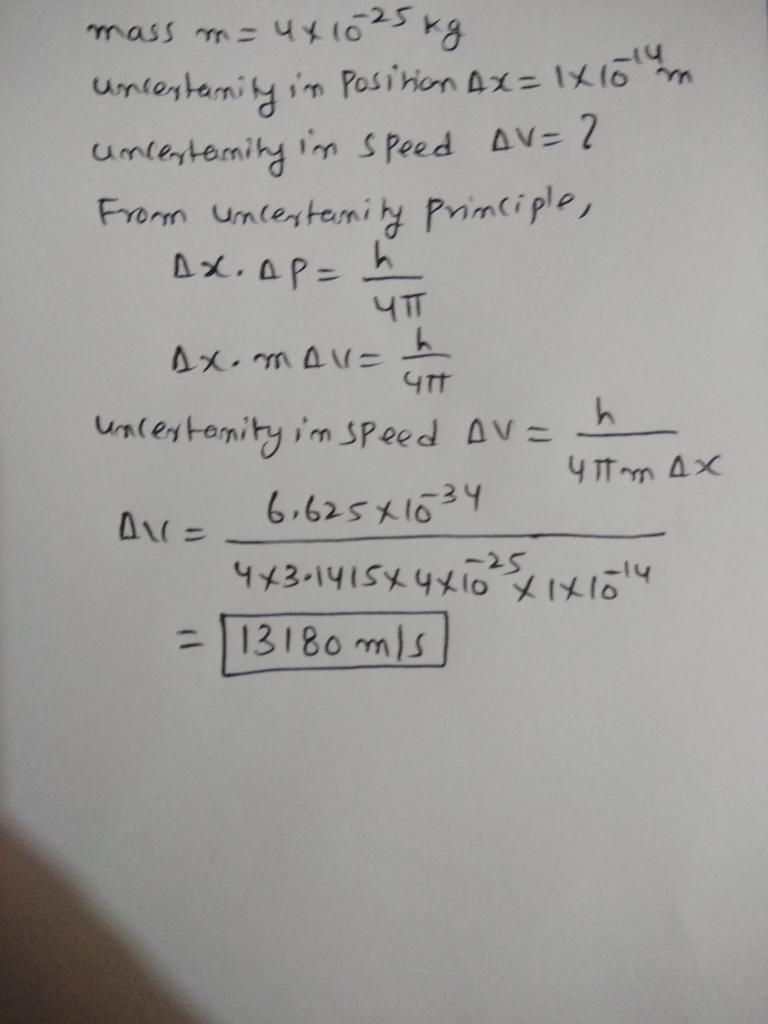 mass m = 4 x 10^-25 kg
uncertainity in Position Δx = 1 x 10^-14 m
uncertainity in speed ΔV = ?
From uncertainity principle,
Δx. ΔP = h/4π
Δx. m ΔV = h/4π
uncertainity in speed ΔV = h/4πm Δx
ΔV = 6.625 x 10^-34 / 4 x 3.1415 x 4 x 10^-25 x 1 x 10^-14
= 13180 m/s